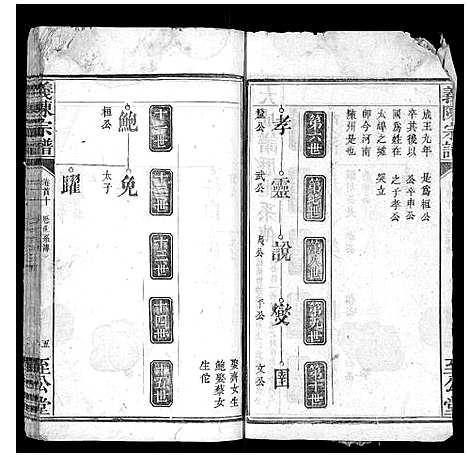 義陳宗譜
至公堂
成王九年
卒其後以
國為姓在
太皞之墟
師今河南
陳州是也
是為桓公
公卒申公
之子孝公
突立
第六世
第七世
第八世
第九世
第十世
孝
靈
說
夔
圉
釐公
武公
夷公
平公
文公
十一世
十二世
十三世
十四世
十五世
鮑
桓公
免
太子
躍
娶齊女生
鮑娶蔡女
生佗
義陳宗譜
卷首十
歷世系傳
五
至公堂